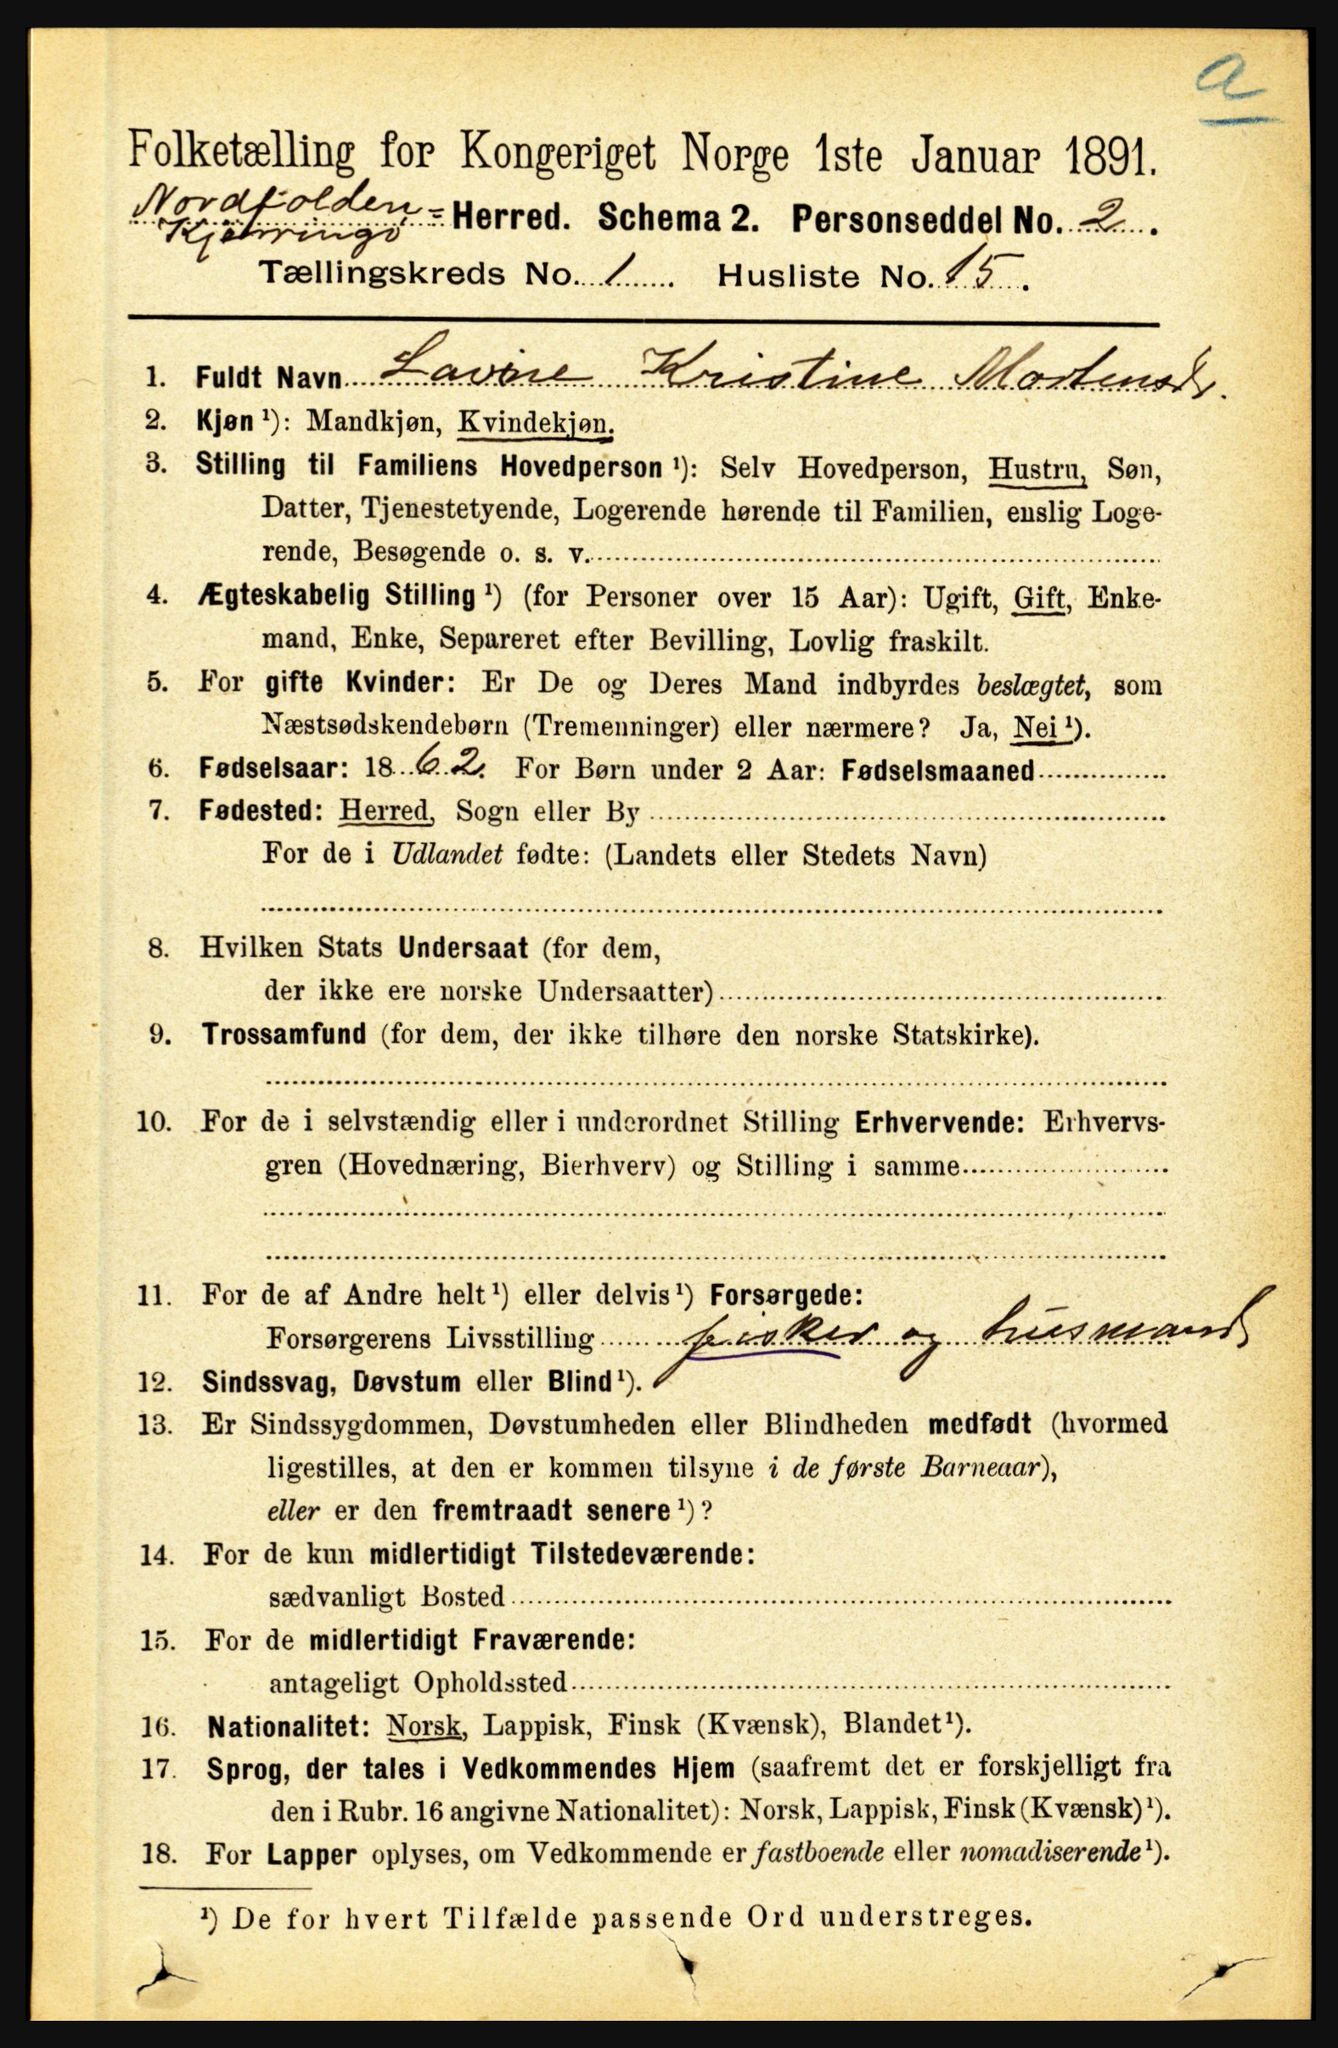 a
Folketælling for Kongeriget Norge 1ste Januar 1891.
Nordfolden-
Kjærringø
Herred. Schema 2. Personseddel No. 2.
Tællingskreds No. 1 Husliste No. 15.
1. Fuldt Navn Lavine Kristine Mortensdr.
2. Kjøn ¹): Mandkjøn, Kvindekjøn.
3. Stilling til Familiens Hovedperson ¹): Selv Hovedperson, Hustru, Søn,
Datter, Tjenestetyende, Logerende hørende til Familien, enslig Loge-
rende, Besøgende o. s. v.
4. Ægteskabelig Stilling ¹) (for Personer over 15 Aar): Ugift, Gift, Enke-
mand, Enke, Separeret efter Bevilling, Lovlig fraskilt.
5. For gifte Kvinder: Er De og Deres Mand indbyrdes beslægtet, som
Næstsødskendebørn (Tremenninger) eller nærmere? Ja, Nei ¹).
6. Fødselsaar: 1862. For Børn under 2 Aar: Fødselsmaaned
7. Fødested: Herred, Sogn eller By
For de i Udlandet fødte: (Landets eller Stedets Navn)
8. Hvilken Stats Undersaat (for dem,
der ikke ere norske Undersaatter)
9. Trossamfund (for dem, der ikke tilhøre den norske Statskirke).
10. For de i selvstændig eller i underordnet Stilling Erhvervende: Erhvervs-
gren (Hovednæring, Bierhverv) og Stilling i samme
11. For de af Andre helt ¹) eller delvis ¹) Forsørgede:
Forsørgerens Livsstilling fisker og husmand
12. Sindssvag, Døvstum eller Blind ¹).
13. Er Sindssygdommen, Døvstumheden eller Blindheden medfødt (hvormed
ligestilles, at den er kommen tilsyne i de første Barneaar),
eller er den fremtraadt senere ¹)?
14. For de kun midlertidigt Tilstedeværende:
sædvanligt Bosted
15. For de midlertidigt Fraværende:
antageligt Opholdssted
16. Nationalitet: Norsk, Lappisk, Finsk (Kvænsk), Blandet ¹).
17. Sprog, der tales i Vedkommendes Hjem (saafremt det er forskjelligt fra
den i Rubr. 16 angivne Nationalitet): Norsk, Lappisk, Finsk (Kvænsk) ¹).
18. For Lapper oplyses, om Vedkommende er fastboende eller nomadiserende ¹).
¹) De for hvert Tilfælde passende Ord understreges.